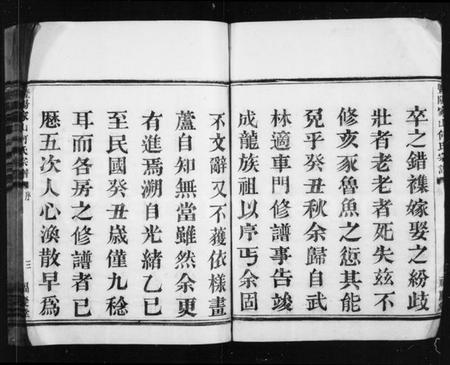 卒之錯襍嫁娶之紛歧
壯者老老者死失玆不
修亥豕魯魚之愆其能
免乎癸丑秋余歸自武
林適車門修譜事告竣
成龍族祖以序丐余固
不文辭又不蒦依樣畫
蘆自知無當雖然余更
有進焉溯自光緒乙巳
至民國癸丑歲僅九稔
耳而各房之修譜者已
歷五次人心渙散早為
三